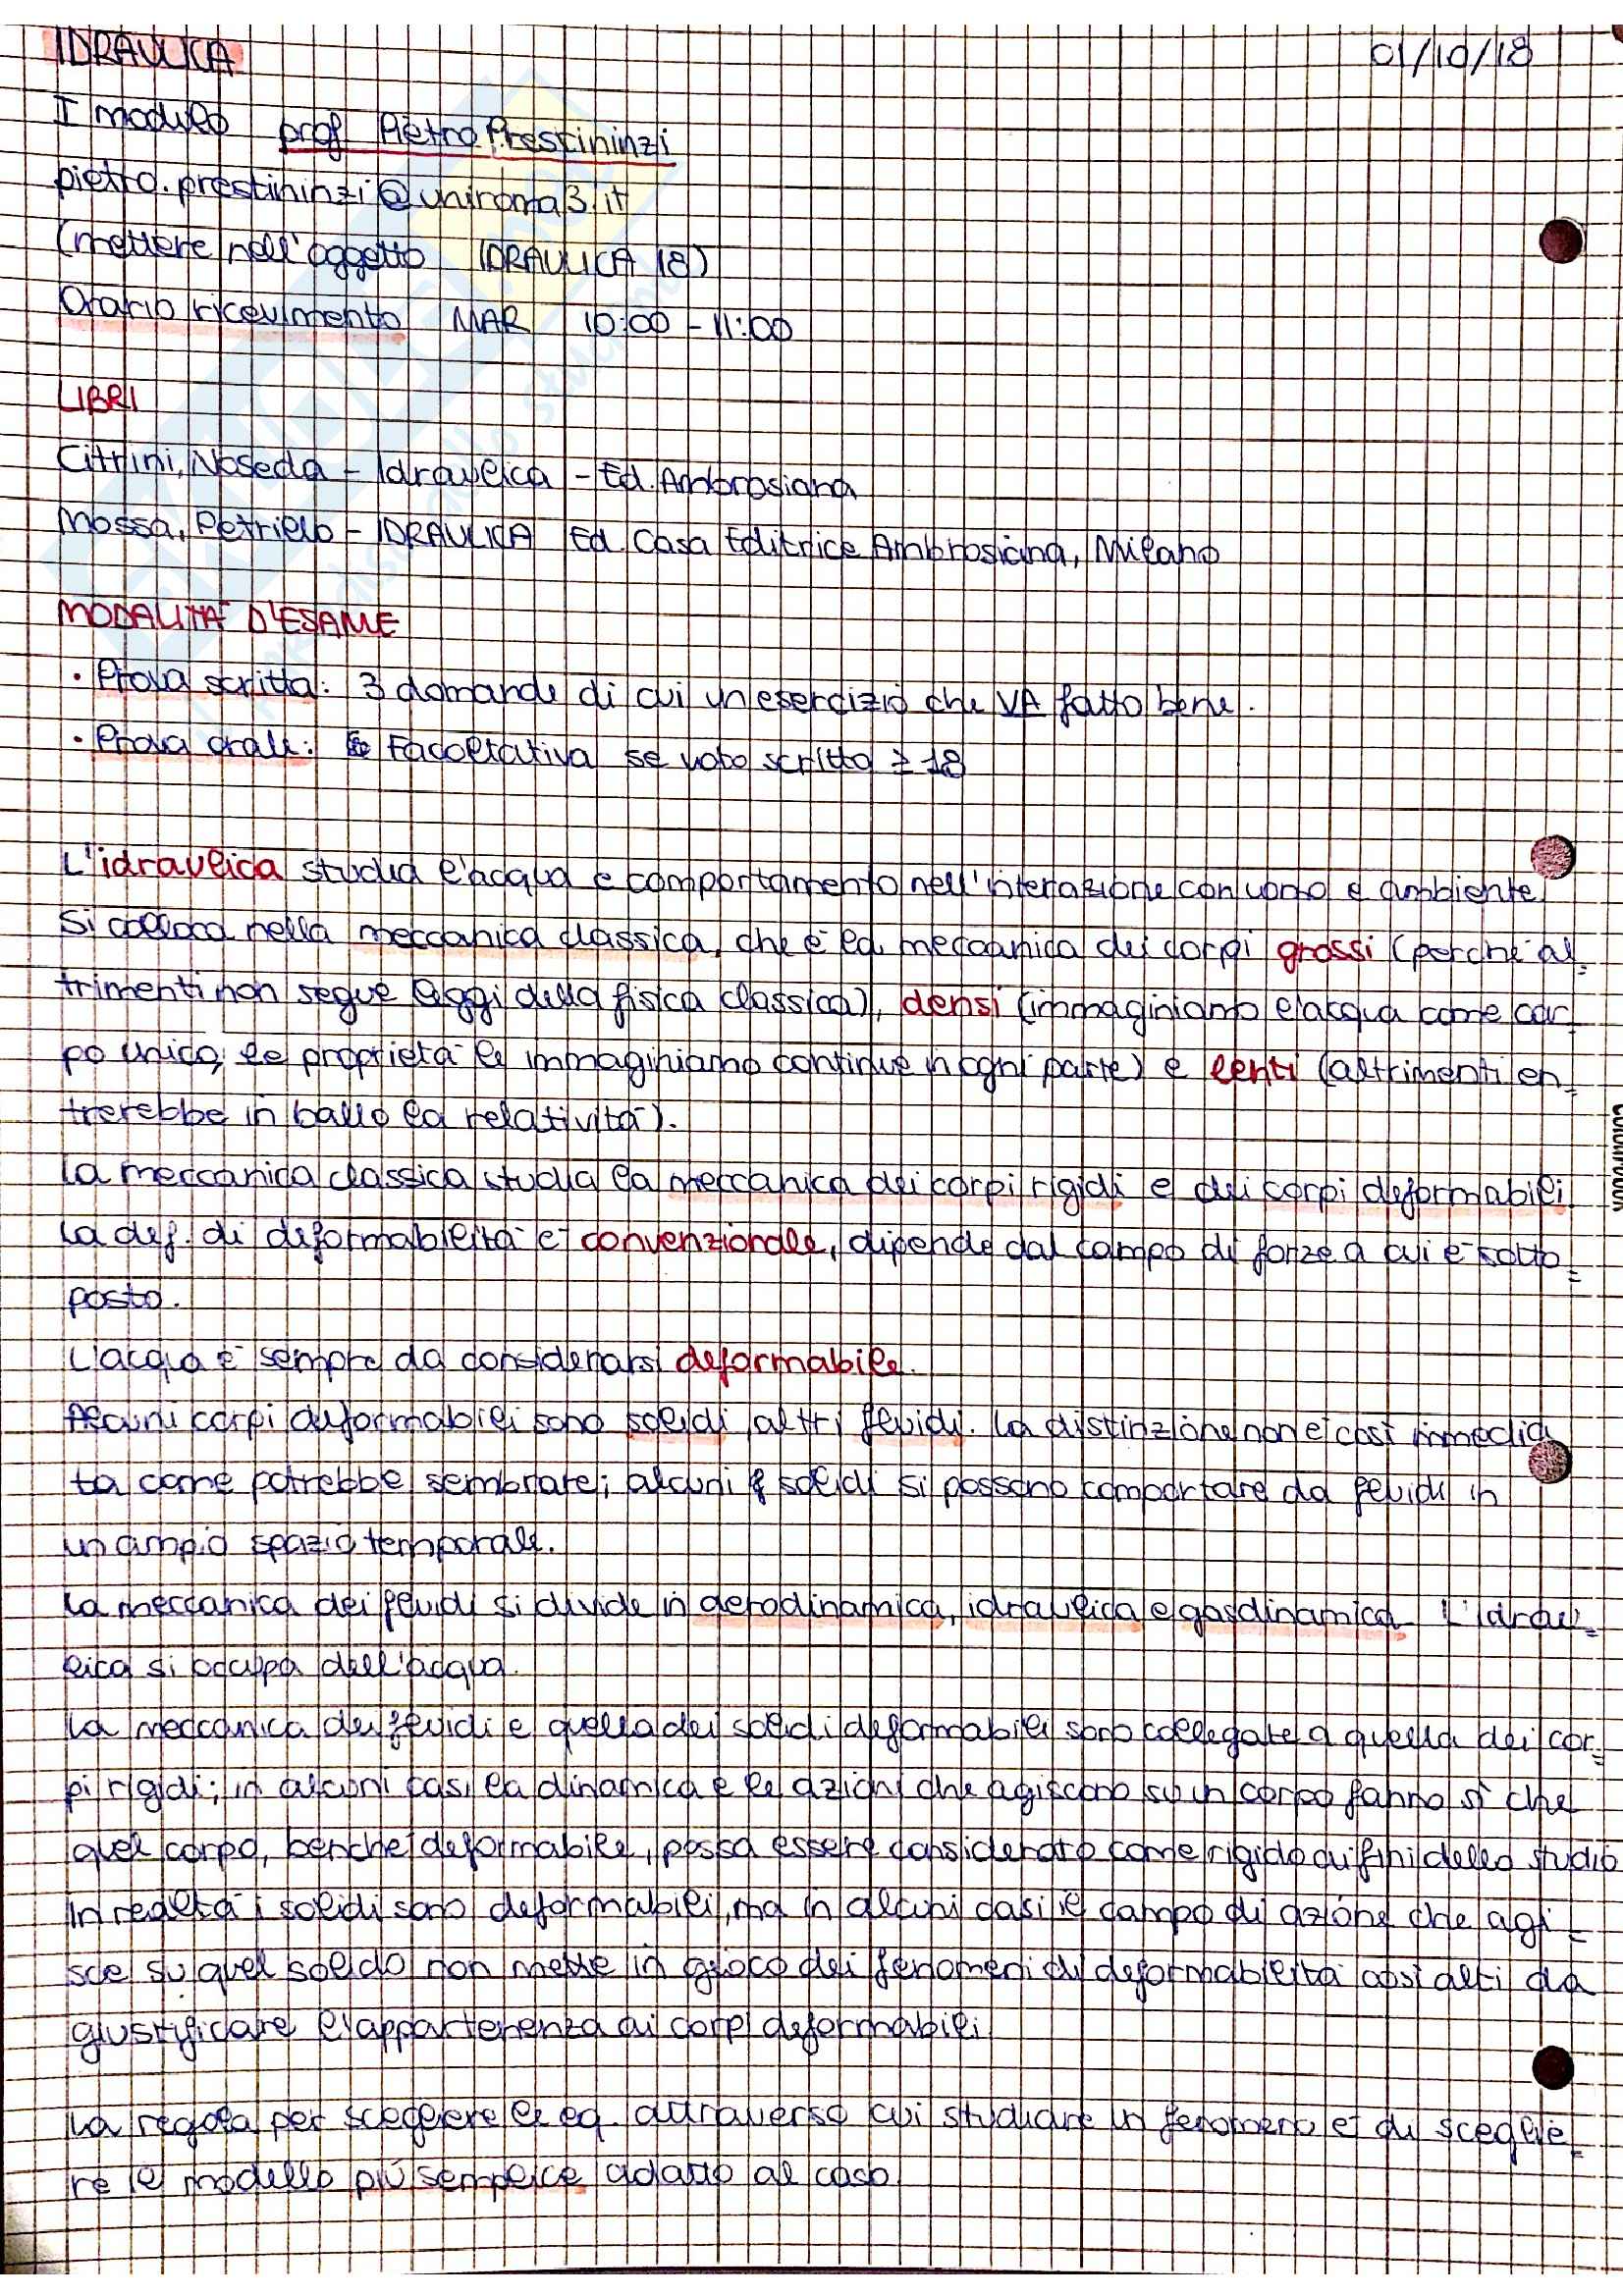 IDRAULICA 01/10/18
I modulo prof Pietro Prestininzi
pietro.prestininzi@uniroma3.it
(mettere nell'oggetto IDRAULICA 18)
Orario ricevimento MAR 10:00 - 11:00
LIBRI
Citrini, Noseda - Idraulica - Ed. Ambrosiana
Mossa, Petriello - IDRAULICA Ed. Casa Editrice Ambrosiana, Milano
MODALITÀ D'ESAME
· Prova scritta: 3 domande di cui un esercizio che VA fatto bene.
· Prova orale: Facoltativa se voto scritto ≥ 18
L'idraulica studia l'acqua e comportamento nell'interazione con uomo e ambiente.
Si colloca nella meccanica classica, che è la meccanica dei corpi grossi (perché al=
trimenti non segue leggi della fisica classica), densi (immaginiamo l'acqua come cor=
po unico, le proprietà le immaginiamo continue in ogni parte) e lenti (altrimenti en=
trerebbe in ballo la relatività).
La meccanica classica studia la meccanica dei corpi rigidi e dei corpi deformabili.
La def. di deformabilità è convenzionale, dipende dal campo di forze a cui è sotto=
posto.
L'acqua è sempre da considerarsi deformabile.
Alcuni corpi deformabili sono solidi, altri fluidi. La distinzione non è così immedia
ta come potrebbe sembrare; alcuni solidi si possono comportare da fluidi in
un ampio spazio temporale.
La meccanica dei fluidi si divide in aerodinamica, idraulica e gasdinamica. L'idrau=
lica si occupa dell'acqua.
La meccanica dei fluidi e quella dei solidi deformabili sono collegate a quella dei cor=
pi rigidi; in alcuni casi la dinamica e le azioni che agiscono su un corpo fanno sì che
quel corpo, benché deformabile, possa essere considerato come rigido ai fini dello studio
In realtà i solidi sono deformabili, ma in alcuni casi il campo di azione che agi=
sce su quel solido non mette in gioco dei fenomeni di deformabilità così alti da
giustificare l'appartenenza ai corpi deformabili
La regola per scegliere le eq. attraverso cui studiare un fenomeno è di sceglie=
re il modello più semplice adatto al caso.